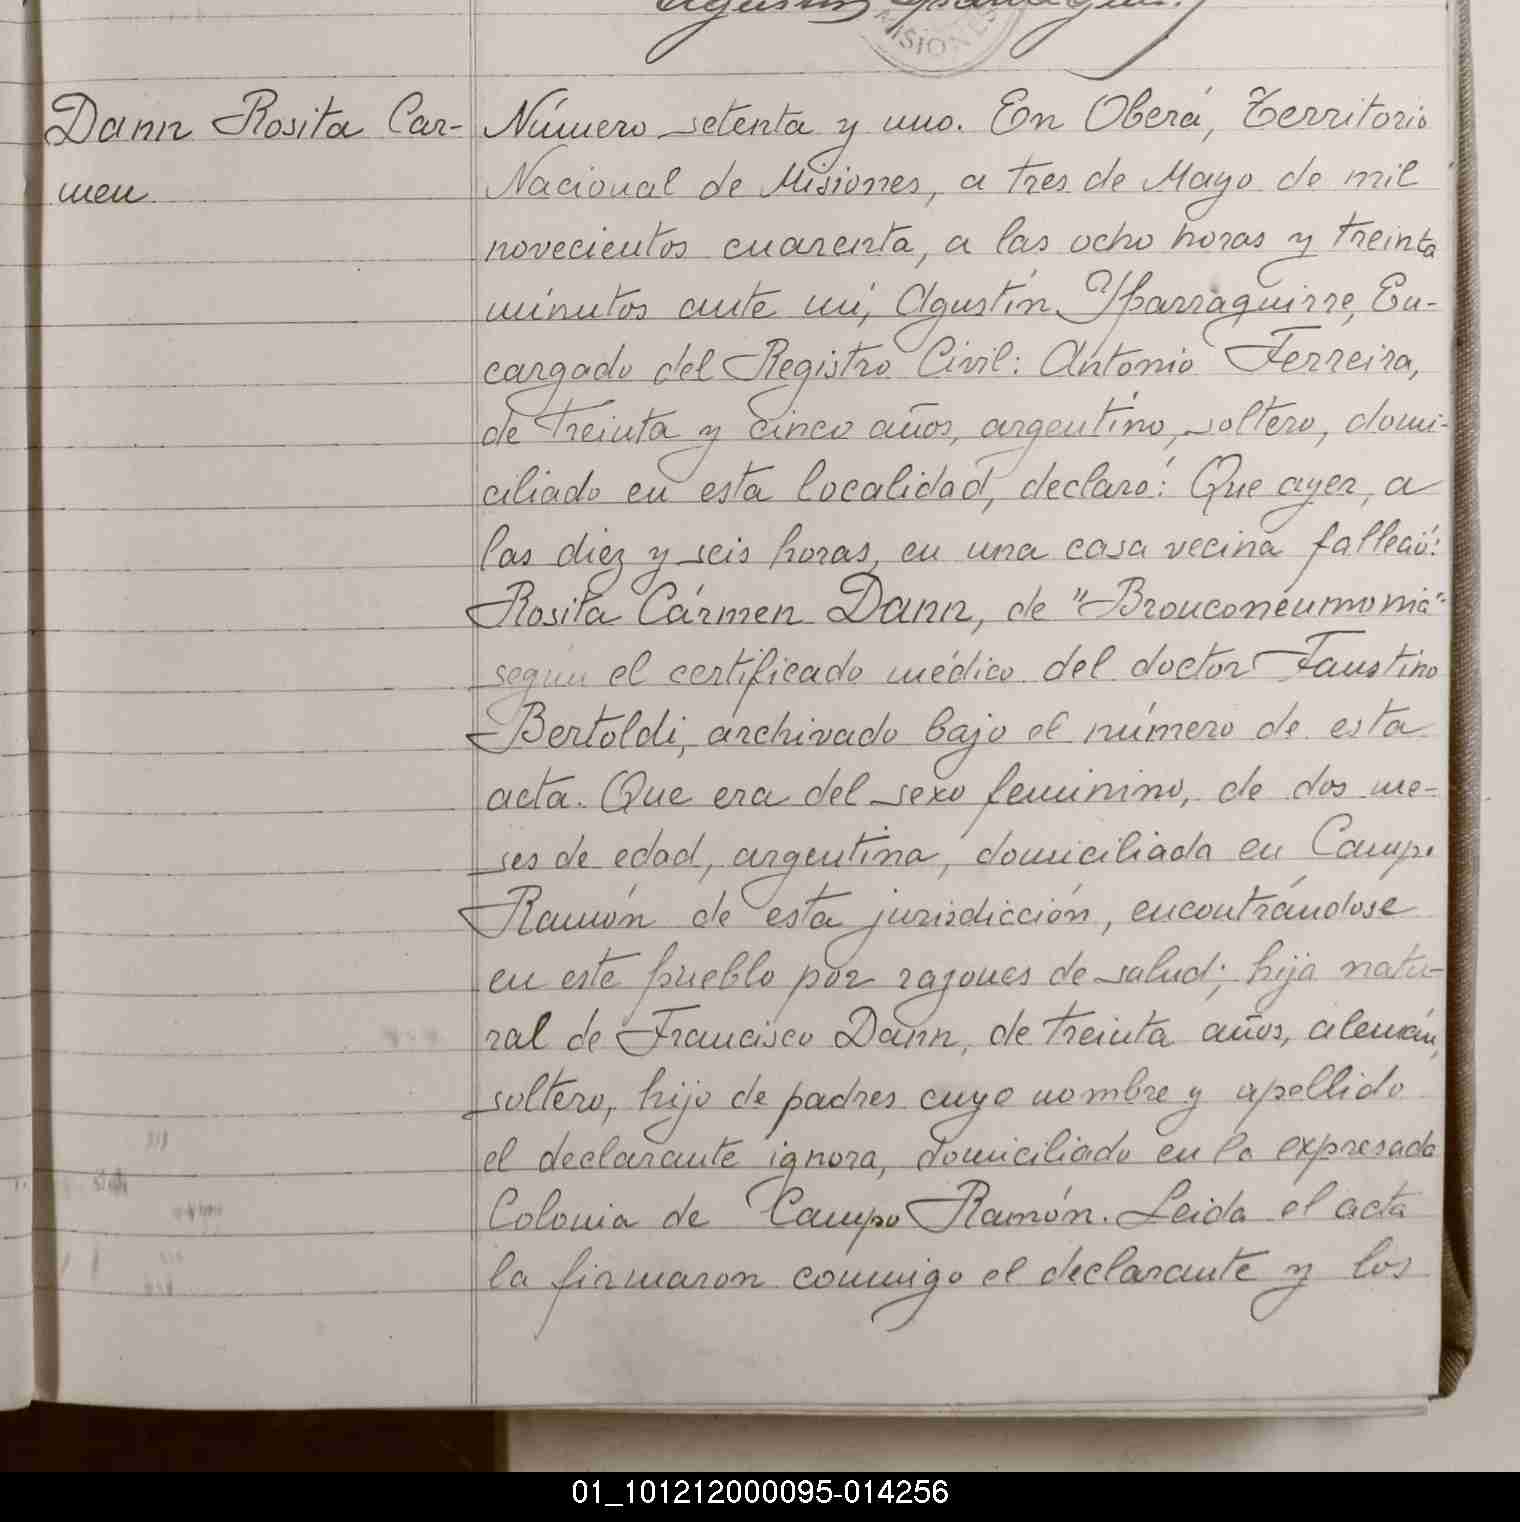 MISIONES
Dann Rosita Car-
men
Número setenta y uno. En Oberá, Territorio
Nacional de Misiones, a tres de Mayo de mil
novecientos cuarenta, a las ocho horas y treinta
minutos ante mí, Agustín Yparraguirre, En-
cargado del Registro Civil: Antonio Ferreira,
de treinta y cinco años, argentino, soltero, domi-
ciliado en esta localidad, declaró: Que ayer, a
las diez y seis horas, en una casa vecina falleció:
Rosita Cármen Dann, de "Bronconeumonia"
según el certificado médico del doctor Faustino
Bertoldi, archivado bajo el número de esta
acta. Que era del sexo feminino, de dos me-
ses de edad, argentina, domiciliada en Campo
Ramón de esta jurisdicción, encontrándose
en este pueblo por razones de salud; hija natu-
ral de Francisco Dann, de treinta años, alemán,
soltero, hijo de padres cuyo nombre y apellido
el declarante ignora, domiciliado en la expresada
Colonia de Campo Ramón. Leida el acta
la firmaron conmigo el declarante y los
01_101212000095-014256